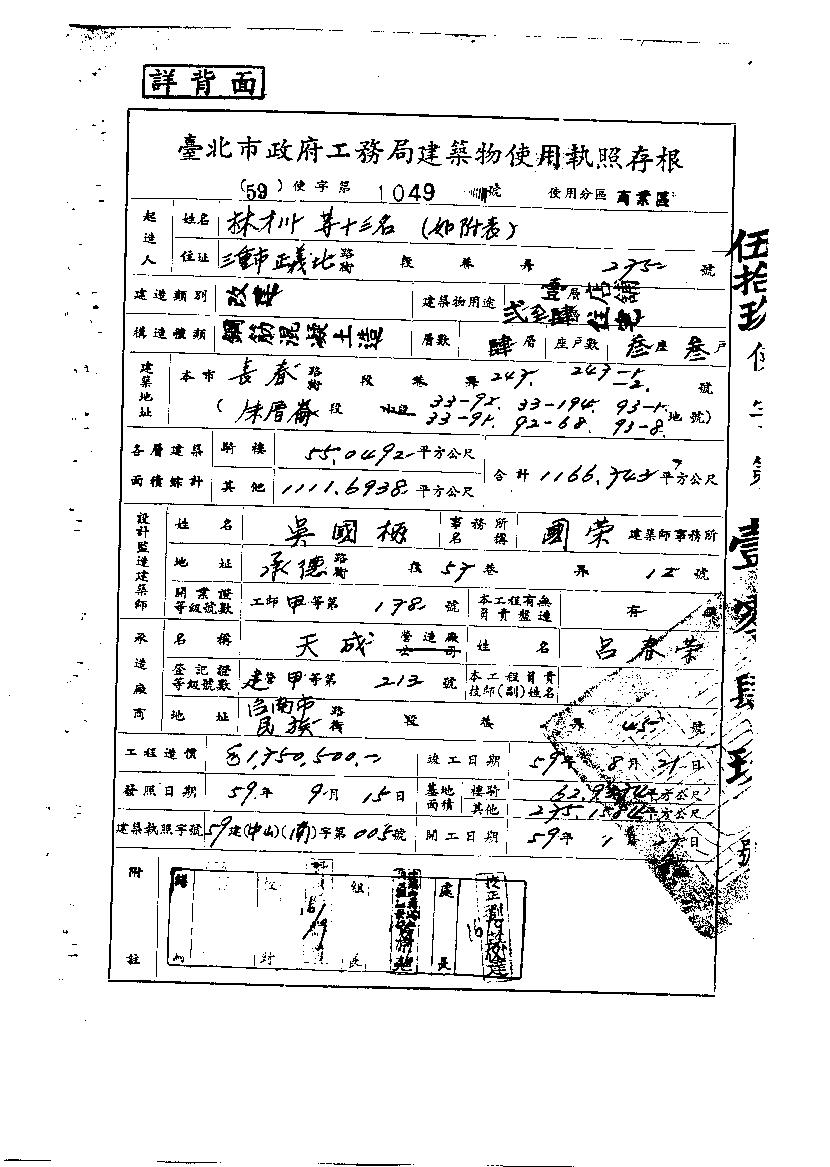 詳背面
臺北市政府工務局建築物使用執照存根
(59)使字第 1049 號 使用分區 商業區
起造人 姓名 林才川 等十三名 (如附表)
住址 三重市正義北 路街 段 巷 弄 275 號
建造類別 改建 建築物用途 壹層店舖 弐至肆層住宅
構造種類 鋼筋混凝土造 層數 肆層 座戶數 叁座 叁戶
建築地址 本市 長春 路街 段 巷 弄 247. 247-1 -2. 號
(朱厝崙 段 小段 33-92. 33-194. 93-1. 33-91. 92-68. 93-8. 地號)
各層建築面積綜計 騎樓 55.0492 平方公尺 合計 1166.743 平方公尺
其他 1111.6938 平方公尺
設計監造建築師 姓名 吳國極 事務所名稱 國荣 建築師事務所
地址 承德 路街 段 57 巷 弄 12 號
開業證等級號數 工師甲等第 178 號 本工程有無負責監造 有
承造廠商 名稱 天成 營造廠公司 姓名 呂春荣
登記證等級號數 建營甲等第 213 號 本工程負責技師(副)姓名
地址 台南市民族 路街 段 巷 弄 45 號
工程造價 1,750,500.- 竣工日期 59年 8月 21日
發照日期 59年 9月 15日 基地面積 騎樓 平方公尺
其他 275.1584 平方公尺
建築執照字號 59建(中山)(南)字第005號 開工日期 59年 1月 日
附註
組長
處長
伍拾玖使字第壹零肆玖號